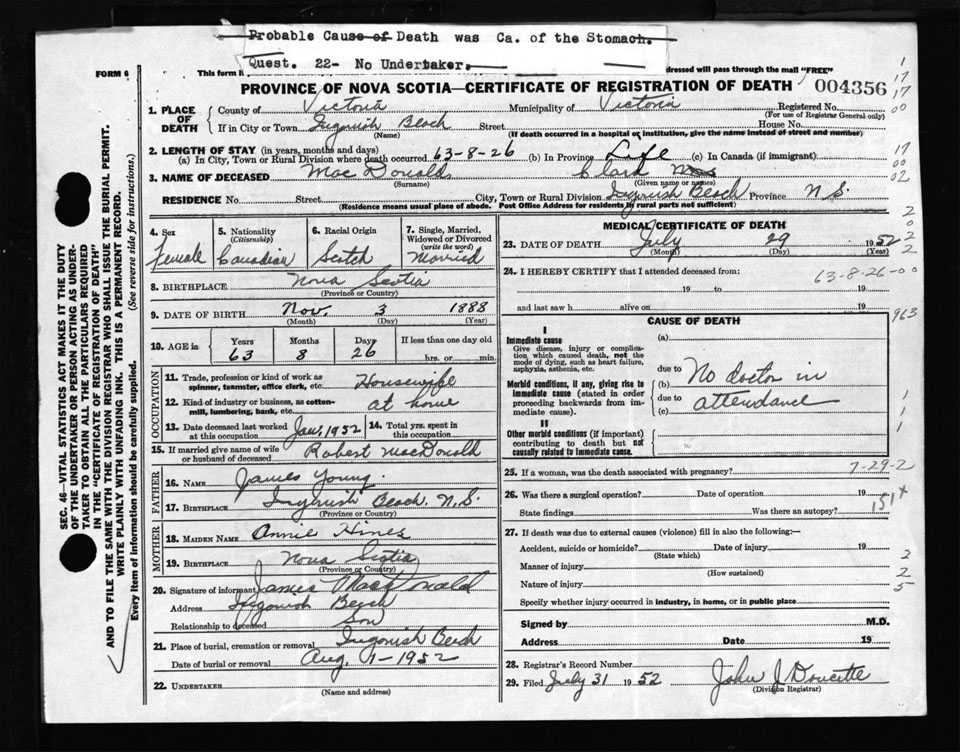 Probable Cause of Death was Ca. of the Stomach.
Quest. 22- No Undertaker.
FORM 6
This form
dressed will pass through the mail "FREE"
PROVINCE OF NOVA SCOTIA—CERTIFICATE OF REGISTRATION OF DEATH
004356
1. PLACE OF DEATH
County of Victoria Municipality of Victoria Registered No.
(For use of Registrar General only)
If in City or Town Ingonish Beach Street House No.
(Name) (If death occurred in a hospital or institution, give the name instead of street and number)
2. LENGTH OF STAY (in years, months and days)
(a) In City, Town or Rural Division where death occurred 63-8-26 (b) In Province Life (c) In Canada (if immigrant)
3. NAME OF DECEASED MacDonald Clara
(Surname) (Given name or names)
RESIDENCE No. Street City, Town or Rural Division Ingonish Beach Province N.S.
(Residence means usual place of abode. Post Office Address for residents in rural parts not sufficient)
4. Sex
Female
5. Nationality
(Citizenship)
Canadian
6. Racial Origin
Scotch
7. Single, Married,
Widowed or Divorced
(write the word)
Married
8. BIRTHPLACE Nova Scotia
(Province or Country)
9. DATE OF BIRTH Nov. 3 1888
(Month) (Day) (Year)
10. AGE in
Years Months Days If less than one day old
63 8 26 hrs. or min.
OCCUPATION
11. Trade, profession or kind of work as
spinner, teamster, office clerk, etc. Housewife
12. Kind of industry or business, as cotton-
mill, lumbering, bank, etc. at home
13. Date deceased last worked
at this occupation Jan, 1952
14. Total yrs. spent in
this occupation
15. If married give name of wife
or husband of deceased Robert MacDonald
FATHER
16. NAME James Young
17. BIRTHPLACE Ingonish Beach. N.S.
(Province or Country)
MOTHER
18. MAIDEN NAME Annie Hines
19. BIRTHPLACE Nova Scotia
(Province or Country)
20. Signature of informant James MacDonald
Address Ingonish Beach
Relationship to deceased Son
21. Place of burial, cremation or removal Ingonish Beach
Date of burial or removal Aug. 1-1952
22. UNDERTAKER
(Name and address)
MEDICAL CERTIFICATE OF DEATH
23. DATE OF DEATH July 29 1952
(Month) (Day) (Year)
24. I HEREBY CERTIFY that I attended deceased from:
63-8-26-00
19 to 19
and last saw h alive on 19
CAUSE OF DEATH
I
Immediate cause
Give disease, injury or complica-
tion which caused death, not the
mode of dying, such as heart failure,
asphyxia, asthenia, etc.
Morbid conditions, if any, giving rise to
immediate cause (stated in order
proceeding backwards from im-
mediate cause).
II
Other morbid conditions (if important)
contributing to death but not
causally related to immediate cause.
(a)
due to
(b) No doctor in
due to attendance
(c)
25. If a woman, was the death associated with pregnancy?
7-29-2
26. Was there a surgical operation? Date of operation 19
State findings Was there an autopsy?
151X
27. If death was due to external causes (violence) fill in also the following:—
Accident, suicide or homicide? Date of injury 19
(State which)
Manner of injury
(How sustained)
Nature of injury
Specify whether injury occurred in industry, in home, or in public place
Signed by M.D.
Address Date 19
28. Registrar's Record Number
29. Filed July 31 1952 John J Doucette
(Division Registrar)
SEC. 46—VITAL STATISTICS ACT MAKES IT THE DUTY
OF THE UNDERTAKER OR PERSON ACTING AS UNDER-
TAKER TO OBTAIN ALL THE PARTICULARS REQUIRED
IN THE "CERTIFICATE OF REGISTRATION OF DEATH"
AND TO FILE THE SAME WITH THE DIVISION REGISTRAR WHO SHALL ISSUE THE BURIAL PERMIT.
WRITE PLAINLY WITH UNFADING INK. THIS IS A PERMANENT RECORD.
Every item of Information should be carefully supplied. (See reverse side for instructions.)
1
17
17
00
17
00
02
2
0
2
2
963
1
1
1
2
2
5